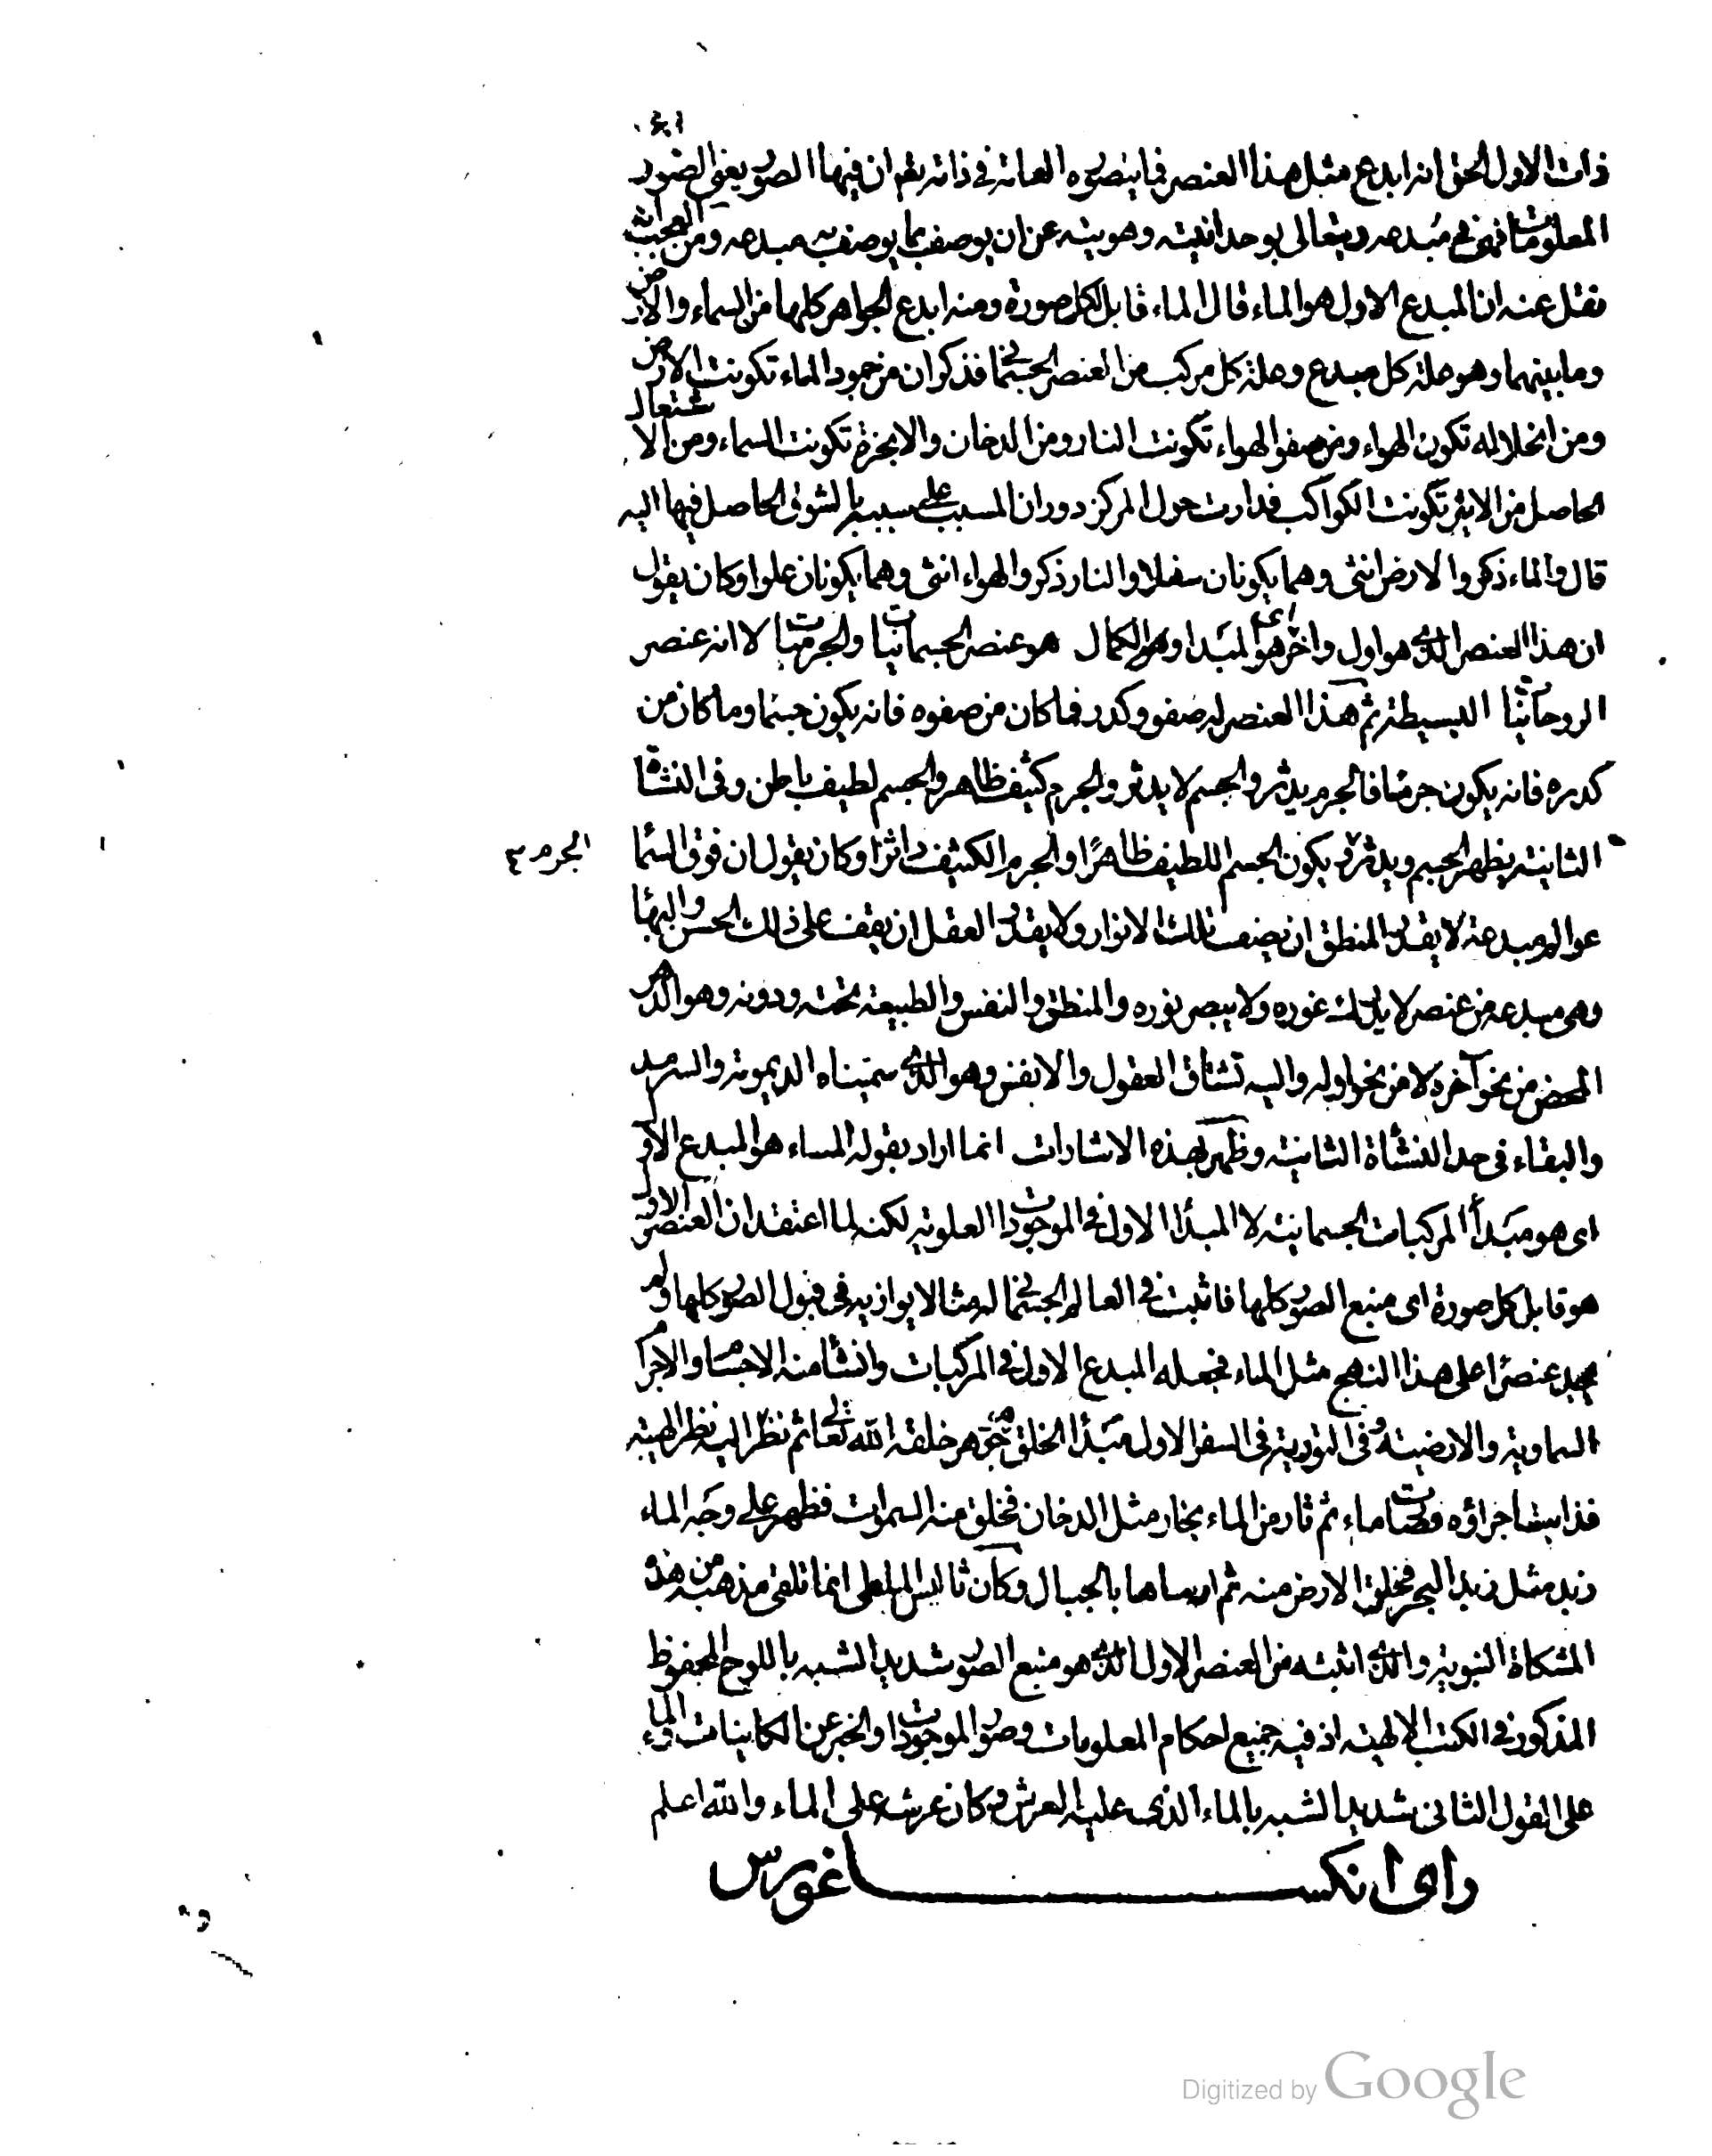 ذات الاول الحق انه ابدع مثل هذا العنصر فما يتصوره العامة فى ذاته تع ان فيها الصور يعنى الصور
المعلومات فهو فى مبدعه ويتعالى بوحدانيته وهويته عن ان يوصف بما يوصف به مبدعه ومن العجب انه
نقل عنه ان المبدع الاول هو الماء قال الماء قابل لكل صورة ومنه ابدع الجواهر كلها من السماء والارض
وما بينهما وهو علة كل مبدع وعلة كل مركب من العنصر الجسمانى فذكر ان من جمود الماء تكونت الارض
ومن انحلاله تكون الهواء ومن صفو الهواء تكونت النار ومن الدخان والابخرة تكونت السماء ومن الاشتعال
الحاصل من الاثير تكونت الكواكب فدارت حول المركز دوران المسبب على سببه بالشوق الحاصل فيها اليه
قال والماء ذكر والارض انثى وهما يكونان سفلا والنار ذكر والهواء انثى وهما يكونان علوا وكان يقول
ان هذا العنصر الذى هو اول واخر اى هو المبدا وهو الكمال هو عنصر الجسمانيات والجرميات لا انه عنصر
الروحانيات البسيطة ثم هذا العنصر له صفو وكدر فما كان من صفوه فانه يكون جسما وما كان من
كدره فانه يكون جرما فالجرم يدثر والجسم لا يدثر والجرم كثيف ظاهر والجسم لطيف باطن وفى النشاة
الثانية يظهر الجسم ويدثر ويكون الجسم اللطيف ظاهرا والجرم الكثيف داثرا وكان يقول ان فوق السما
الجرم
عوالم مبدعة لا يقدر المنطق ان يصف تلك الانوار ولا يقدر العقل ان يقف على ذلك الحسن والبها
وهى مبدعه من عنصر لا يدرك غوره ولا يبصر نوره والمنطق والنفس والطبيعة تحته ودونه وهو الدهر
المحض من نحو آخره لا من نحو اوله واليه تشتاق العقول والانفس وهو الذى سميناه الديمومة والسرمد
والبقاء فى حد النشأة الثانية وظهر بهذه الاشارات انما اراد بقوله الماء هو المبدع الاول
اى هو مبدأ المركبات الجسمانية لا المبدا الاول فى الموجودات العلوية لكنه لما اعتقد ان العنصر الاول
هو قابل كل صورة اى منبع الصور كلها فاثبت فى العالم الجسمانى له مثالا يوازيه فى قبول الصور كلها ولم
يجد عنصرا على هذا النهج مثل الماء فجعله المبدع الاول فى المركبات وانشأ منه الاجسام والاجرام
السماوية والارضية وفى التورية فى السفر الاول مبدأ الخلق جوهر خلقه الله تعالى ثم نظر اليه نظر الهيبة
فذابت اجزاؤه فصارت ماء ثم ثار من الماء بخار مثل الدخان فخلق منه السموات فظهر على وجه الماء
زبد مثل زبد البحر فخلق الارض منه ثم ارساها بالجبال وكان ثاليس الملطى انما تلقى مذهبه من هذه
المشكاة النبوية والذى اثبته من العنصر الاول الذى هو منبع الصور شديد الشبه باللوح المحفوظ
المذكور فى الكتب الالهية اذ فيه جميع احكام المعلومات وصور الموجودات والخبر عن الكاينات والماء
على القول الثانى شديد الشبه بالماء الذى عليه العرش وكان عرشه على الماء والله اعلم
راى انكساغورس
Digitized by Google